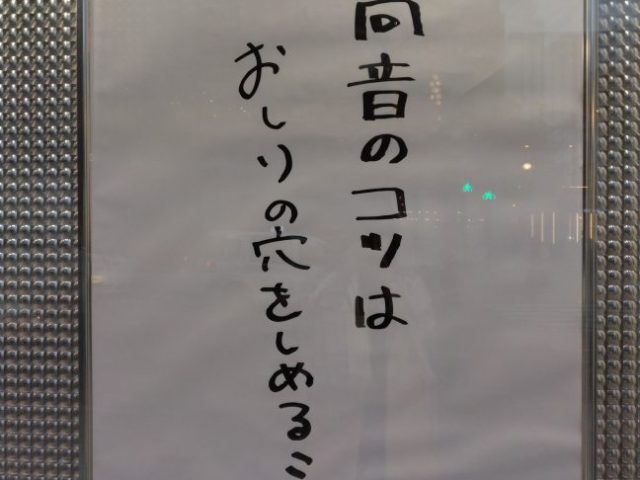 音のコツは
おしりの穴をしめるこ